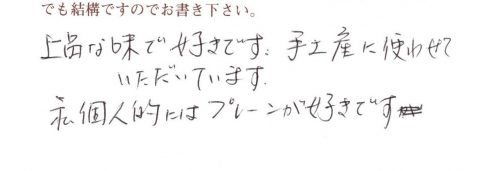 でも結構ですのでお書き下さい。
上品な味で好きです。手土産に使わせて
いただいています。
私個人的にはプレーンが好きです